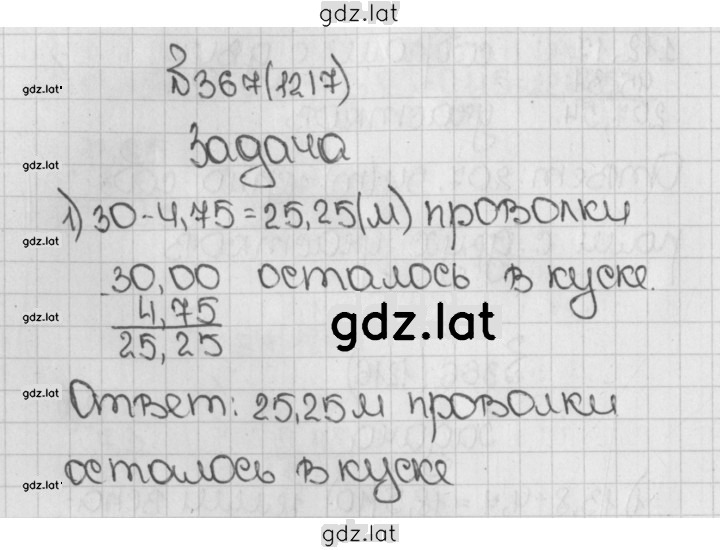 gdz.lat
№367(1217)
gdz.lat
Задача
gdz.lat
1) 30-4,75=25,25(м) проволки
gdz.lat
30,00 осталось в куске.
- 4,75
gdz.lat
25,25
gdz.lat
gdz.lat
Ответ: 25,25м проволки
gdz.lat
осталось в куске
gdz.lat
gdz.lat